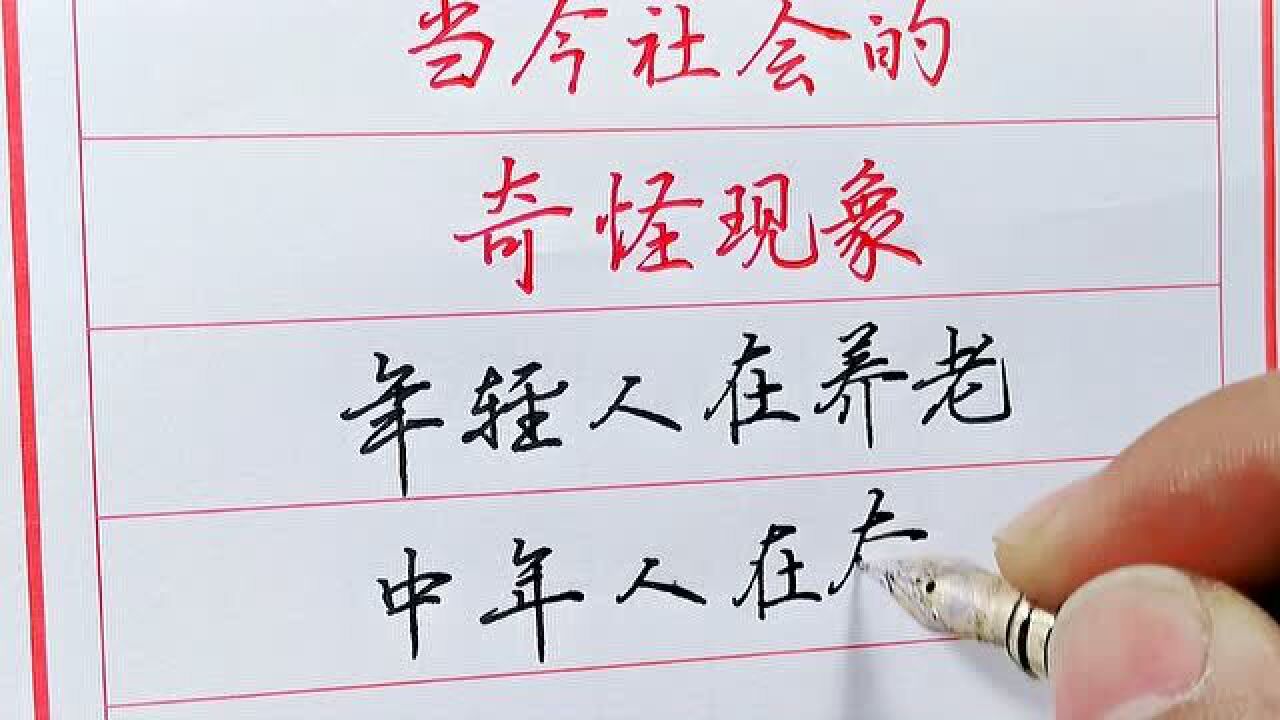 当今社会的
奇怪现象
年轻人在养老
中年人在